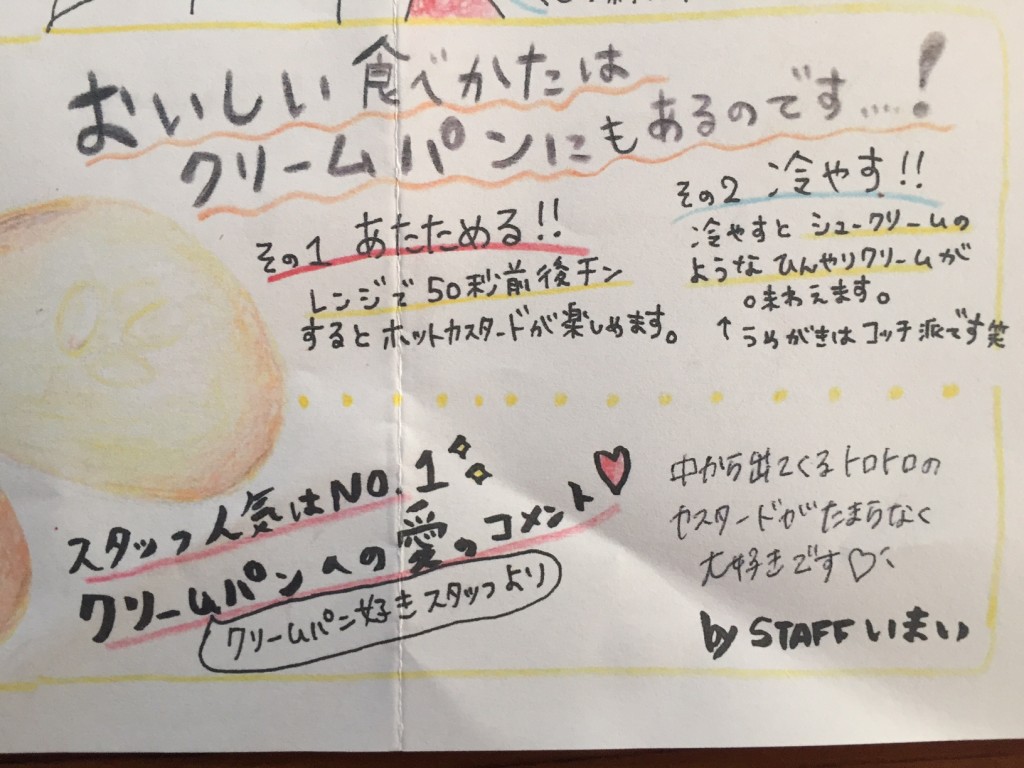 おいしい食べかたは
クリームパンにもあるのです....!
その1 あたためる!!
レンジで50秒前後チン
するとホットカスタードが楽しめます。
その2 冷やす!!
冷やすとシュークリームの
ようなひんやりクリームが
味わえます。
↑うめがきはコッチ派です笑
スタッフ人気はNO.1
クリームパンへの愛のコメント♡
クリームパン好きスタッフより
中から出てくるトロトロの
カスタードがたまらなく
大好きです♡
by STAFF いまい